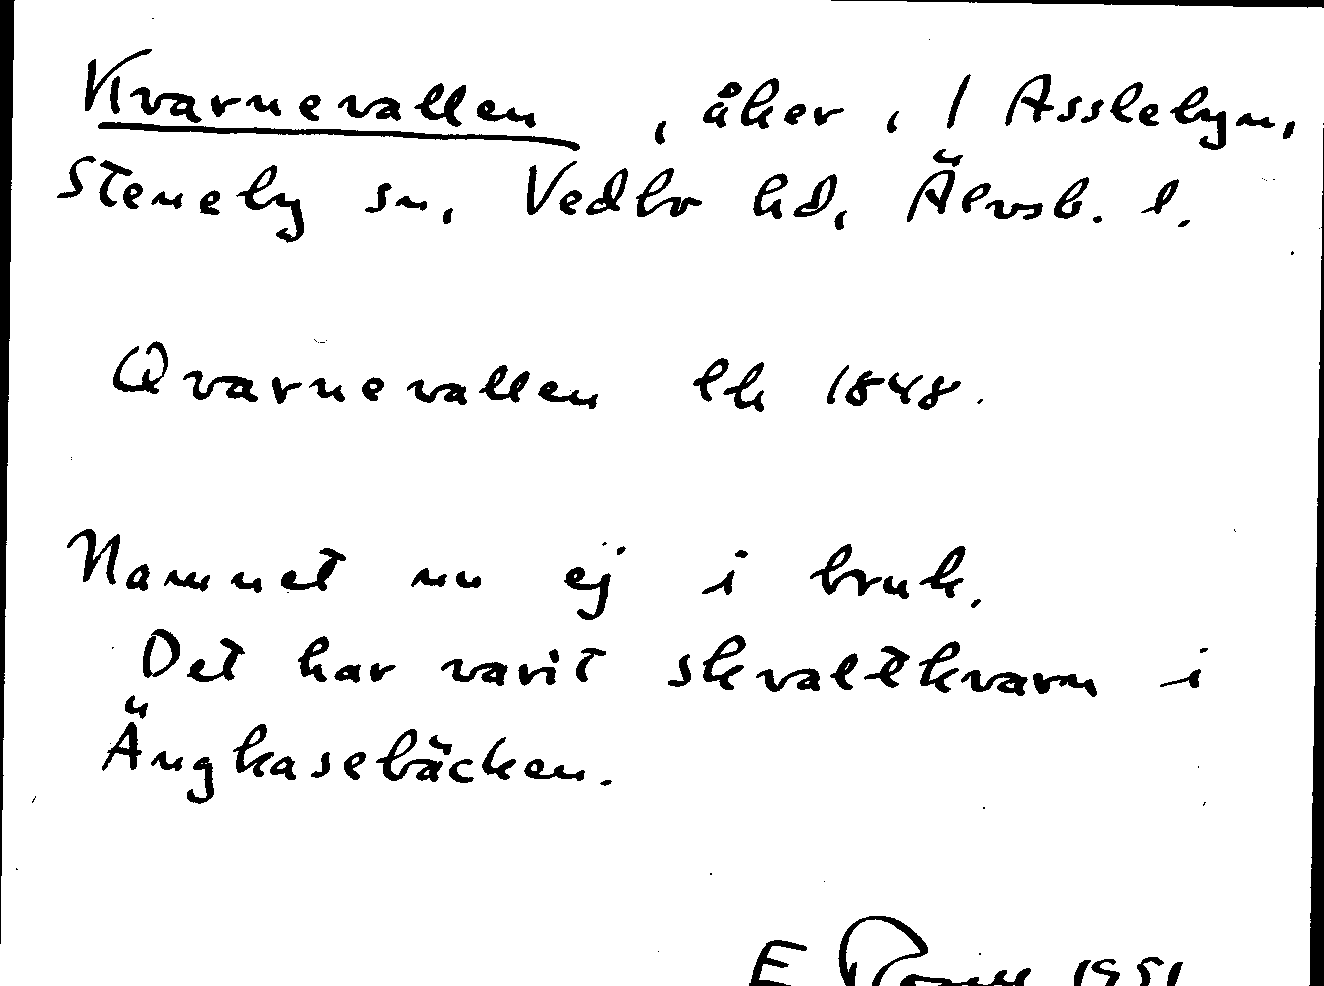 Kvarnevallen, åker, / Asslebyn,
Steneby sn, Vedbo hd, Älvsb. l.
Qvarnevallen lk 1848.
Namnet nu ej i bruk.
Det har varit skvaltkvarn i
Ängkasebäcken.
E 1951